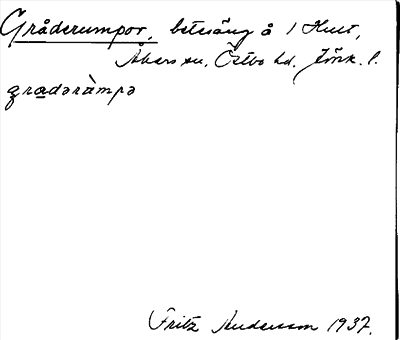 Gråderumpor, betesäng å 1 Hult,
Åkers sn, Östbo hd, Jönk. l.
gradəràmpə
Fritz Andersson 1937.